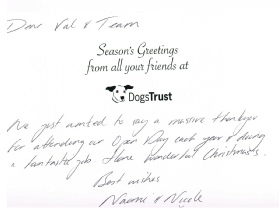 Dear Val & Team
Season's Greetings
from all your friends at
DogsTrust
We just wanted to say a massive thankyou
for attending our Open Day each year & doing
a fantastic job. Have wonderful Christmas's.
Best wishes
Naomi & Nicole